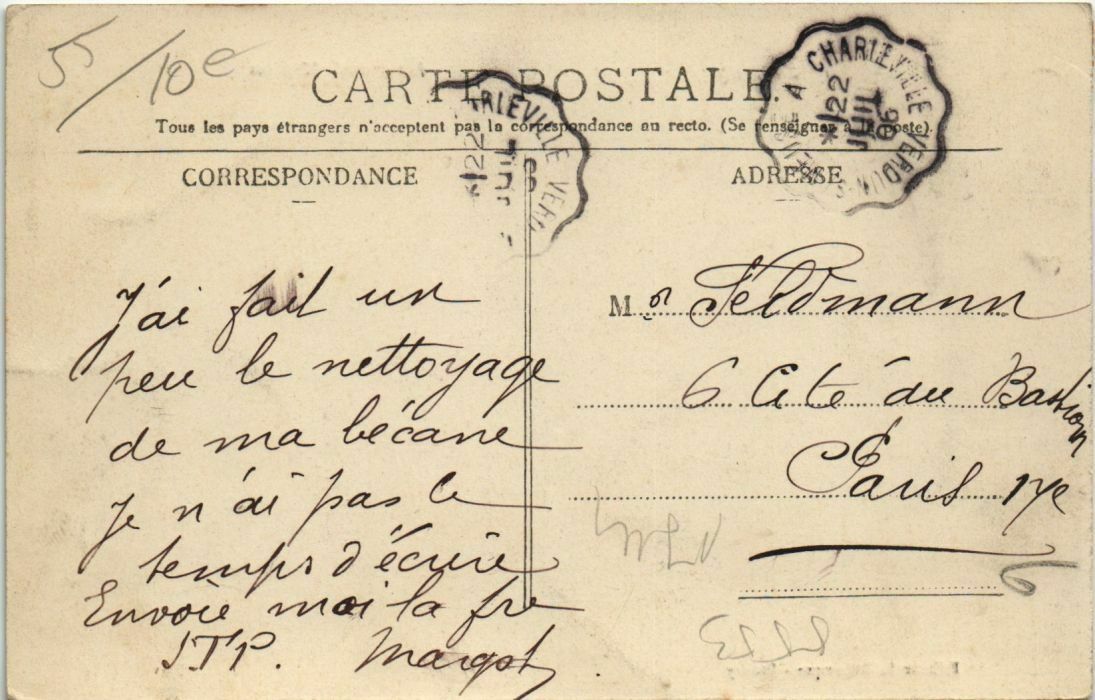 55/10e
CARTE POSTALE.
Tous les pays étrangers n'acceptent pas la correspondance au recto. (Se renseigner à la poste).
CHARLEVILLE VERDUN
22
JUIL
06
CORRESPONDANCE
ADRESSE
J'ai fait un
peu le nettoyage
de ma bécane
je n'ai pas le
temps d'écrire
Envoie moi la fre
STP. Margot
Mr Feldmann
6 Cité du Bastion
Paris 17e